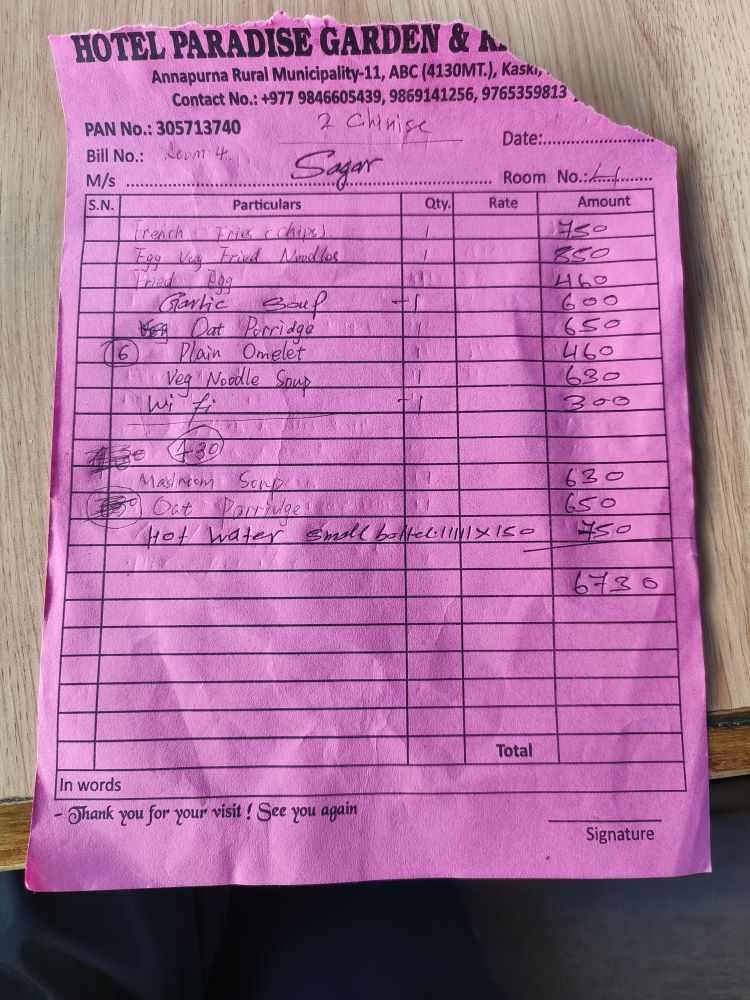 HOTEL PARADISE GARDEN &
Annapurna Rural Municipality-11, ABC (4130MT.), Kaski,
Contact No.: +977 9846605439, 9869141256, 9765359813
PAN No.: 305713740 2 Chinise Date:
Bill No.: Room 4.
M/s Sagar Room No.: 4
S.N. Particulars Qty. Rate Amount
French Fries (chips). 1 750
Egg Veg Fried Noodles 1 850
Fried Egg 1 460
Garlic Soup -1 600
Oat Porridge 1 650
6 Plain Omelet 1 460
Veg Noodle Soup 1 630
Wi fi -1 300
730
Mashroom Soup 1 630
Oat Porridge 1 650
Hot Water small bottel. 11111 X 150 750
6730
Total
In words
- Thank you for your visit ! See you again
Signature